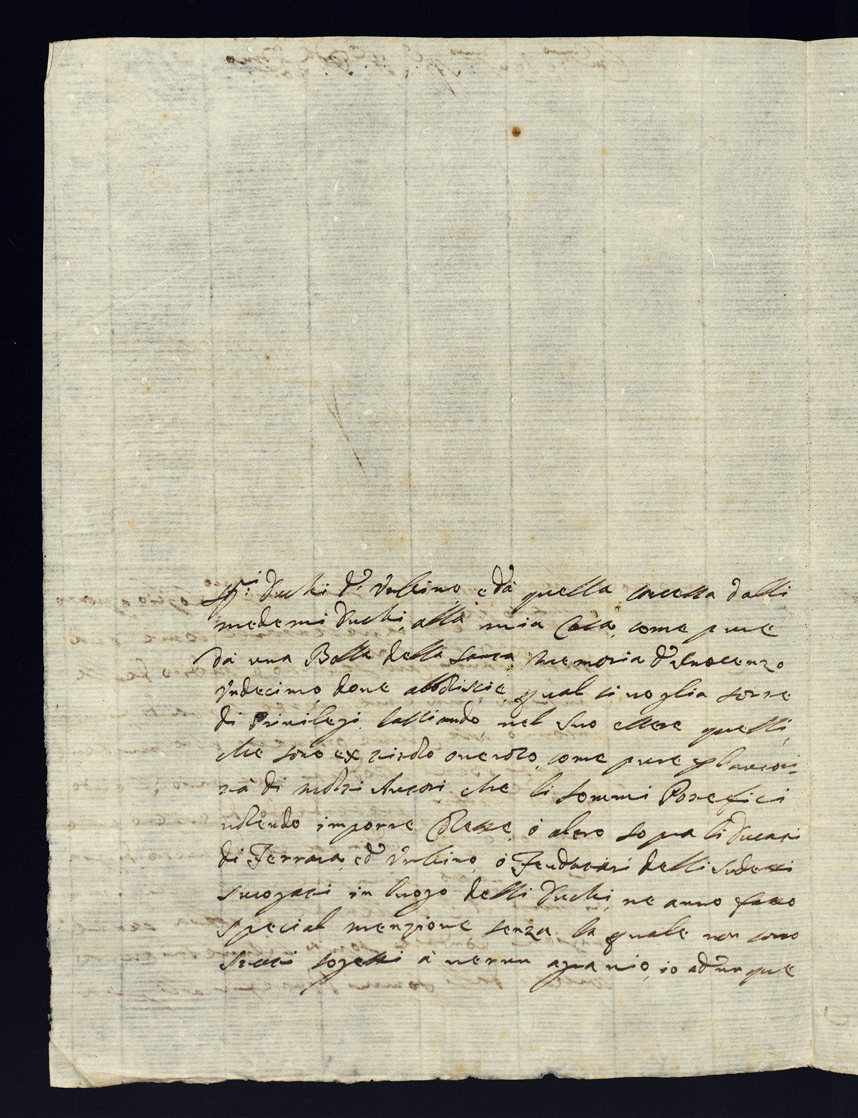 SS.ri Duchi d'Urbino e dà quella concessa dalli
medemi Duchi, alla mia Casa, come pure
dà una Bolla della santa memoria d'Inocenzo
Undecimo, dove abolisce qual si voglia sorte
di Privilegi, lassiando nel suo essere quelli,
che sono ex titolo oneroso, come pure
di molti Autori che li sommi Pontefici
volendo imporre Colette, ò altro sopra li Ducati
di Ferrara, ed Urbino, ò Feudatari delli sudetti
surogati in luogo delli Duchi, ne anno fatto
special menzione senza la quale non sono
stati sogetti à verun agravio, io adunque